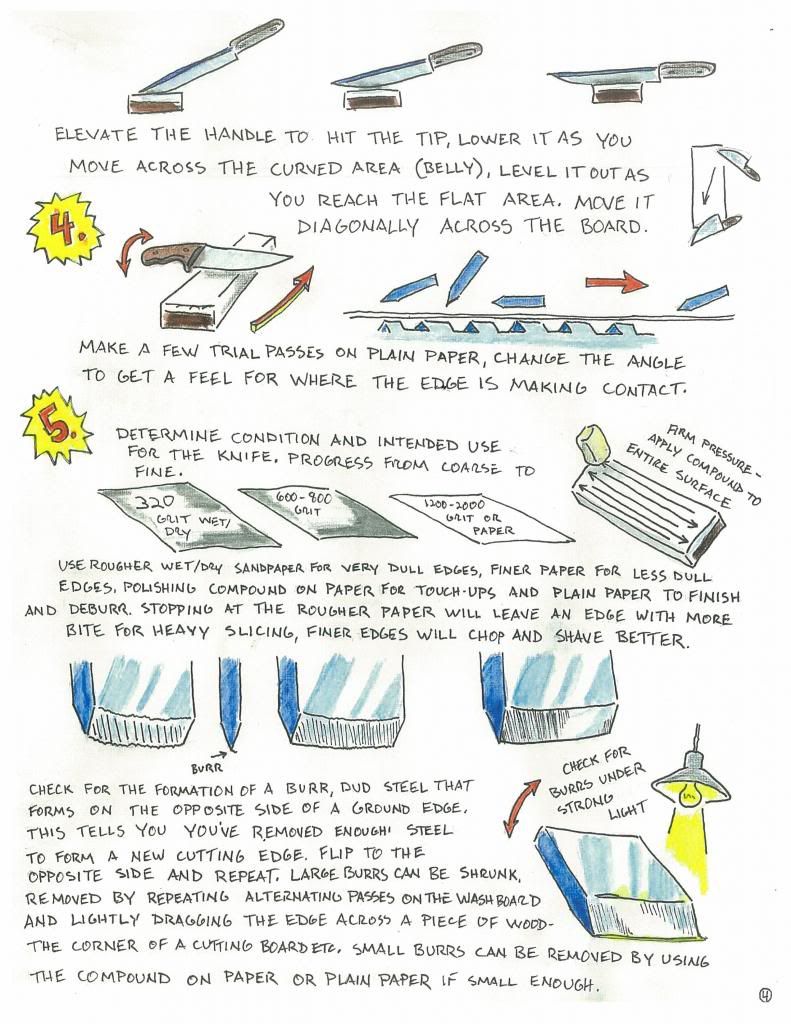 ELEVATE THE HANDLE TO HIT THE TIP, LOWER IT AS YOU
MOVE ACROSS THE CURVED AREA (BELLY), LEVEL IT OUT AS
YOU REACH THE FLAT AREA. MOVE IT
DIAGONALLY ACROSS THE BOARD.
4.
MAKE A FEW TRIAL PASSES ON PLAIN PAPER, CHANGE THE ANGLE
TO GET A FEEL FOR WHERE THE EDGE IS MAKING CONTACT.
5.
DETERMINE CONDITION AND INTENDED USE
FOR THE KNIFE. PROGRESS FROM COARSE TO
FINE.
FIRM PRESSURE-
APPLY COMPOUND TO
ENTIRE SURFACE
320
GRIT WET/
DRY
600-800
GRIT
1200-2000
GRIT OR
PAPER
USE ROUGHER WET/DRY SANDPAPER FOR VERY DULL EDGES, FINER PAPER FOR LESS DULL
EDGES, POLISHING COMPOUND ON PAPER FOR TOUCH-UPS AND PLAIN PAPER TO FINISH
AND DEBURR. STOPPING AT THE ROUGHER PAPER WILL LEAVE AN EDGE WITH MORE
BITE FOR HEAVY SLICING, FINER EDGES WILL CHOP AND SHAVE BETTER.
BURR
CHECK FOR
BURRS UNDER
STRONG
LIGHT
CHECK FOR THE FORMATION OF A BURR, DUD STEEL THAT
FORMS ON THE OPPOSITE SIDE OF A GROUND EDGE.
THIS TELLS YOU YOU'VE REMOVED ENOUGH STEEL
TO FORM A NEW CUTTING EDGE. FLIP TO THE
OPPOSITE SIDE AND REPEAT. LARGE BURRS CAN BE SHRUNK,
REMOVED BY REPEATING ALTERNATING PASSES ON THE WASHBOARD
AND LIGHTLY DRAGGING THE EDGE ACROSS A PIECE OF WOOD-
THE CORNER OF A CUTTING BOARD ETC. SMALL BURRS CAN BE REMOVED BY USING
THE COMPOUND ON PAPER OR PLAIN PAPER IF SMALL ENOUGH.
4